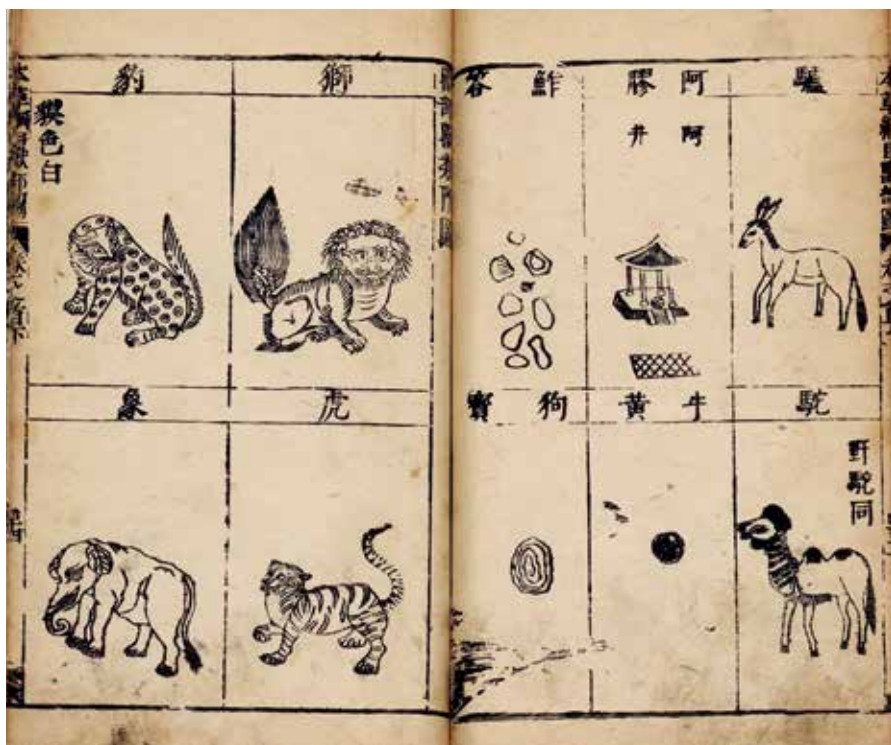 驢
阿膠
阿井
鮓答
駝
野駝同
牛黃
狗寶
獅
豹
貘色白
虎
象